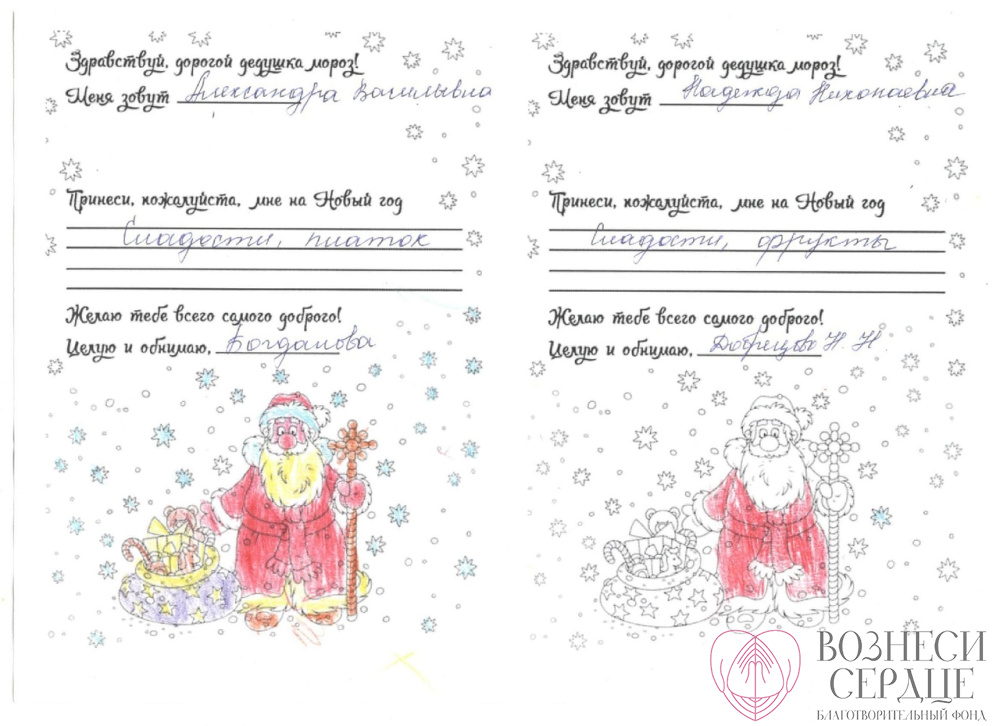 Здравствуй, дорогой дедушка мороз!
Меня зовут Александра Васильевна
Принеси, пожалуйста, мне на Новый год
Сладости, платок
Желаю тебе всего самого доброго!
Целую и обнимаю, Богданова
Здравствуй, дорогой дедушка мороз!
Меня зовут Надежда Николаевна
Принеси, пожалуйста, мне на Новый год
Сладости, фрукты
Желаю тебе всего самого доброго!
Целую и обнимаю, Н. Н.
ВОЗНЕСИ
СЕРДЦЕ
БЛАГОТВОРИТЕЛЬНЫЙ ФОНД